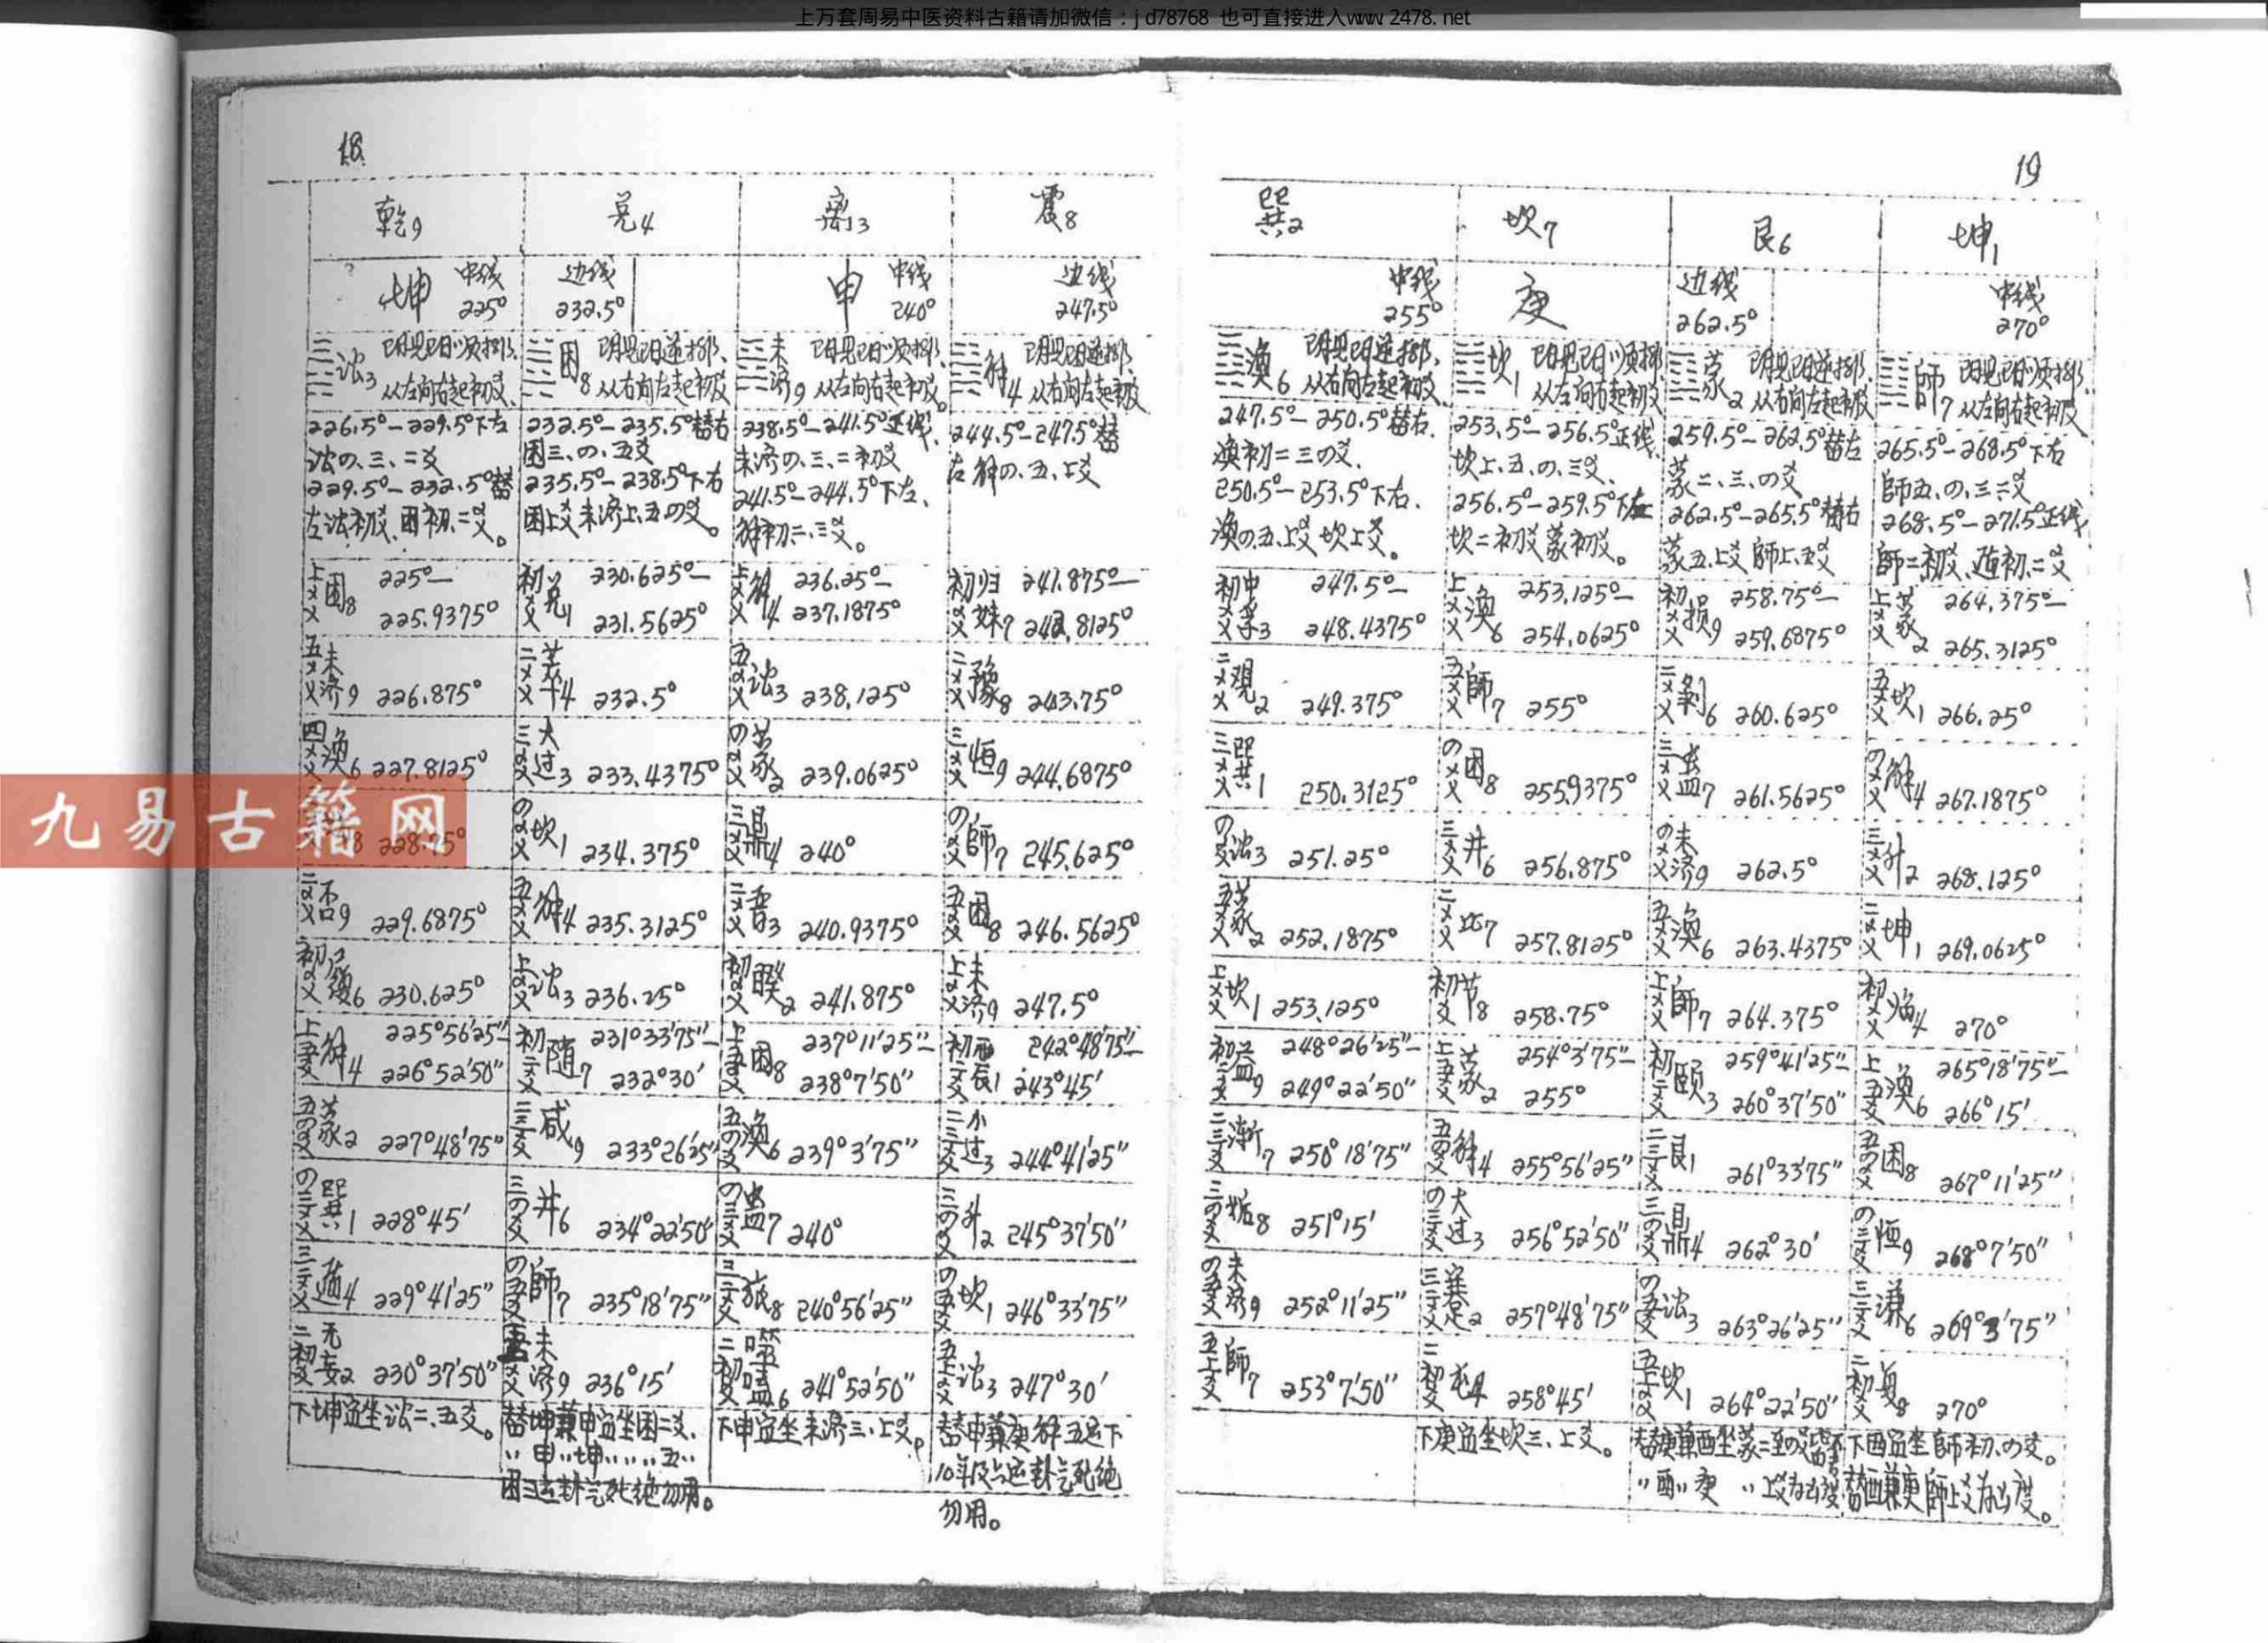 上万套周易中医资料古籍请加微信：jd78768 也可直接进入www.2478.net
18
乾9 兑4 离3 震8
坤 中线 225° 边线 232.5° 申 中线 240° 边线 247.5°
讼3 从左向右起初爻
困8 从右向左起初爻
未济9 从左向右起初爻
解4 从右向左起初爻
226.5°-229.5°下左
讼の、三、二爻
229.5°-232.5°替
左讼初爻、困初、二爻。
232.5°-235.5°替右
困三、の、五爻
235.5°-238.5°下右
困上爻未济上、五の爻。
238.5°-241.5°正线
未济の、三、二初爻
241.5°-244.5°下左、
解初二、三爻。
244.5°-247.5°替
左解の、五、上爻
上爻 困8 225°- 225.9375°
初爻 兑1 230.625°- 231.5625°
上爻 解4 236.25°- 237.1875°
初爻 归妹7 241.875°- 242.8125°
五爻 未济9 226.875°
二爻 萃4 232.5°
五爻 讼3 238.125°
二爻 豫8 243.75°
四爻 涣6 227.8125°
三爻 大过3 233.4375°
の爻 蒙2 239.0625°
三爻 恒9 244.6875°
228.75°
の爻 坎1 234.375°
三爻 鼎4 240°
の爻 師7 245.625°
二爻 否9 229.6875°
五爻 解4 235.3125°
二爻 晋3 240.9375°
五爻 困8 246.5625°
初爻 履6 230.625°
上爻 讼3 236.25°
初爻 睽2 241.875°
上爻 未济9 247.5°
上五爻 解4 225°56'25"- 226°52'50"
初二爻 随7 231°33'75"- 232°30'
上五爻 困8 237°11'25"- 238°7'50"
初二爻 震1 242°48'75"- 243°45'
五の爻 蒙2 227°48'75"
二三爻 咸9 233°26'25"
五の爻 涣6 239°3'75"
二三爻 小过3 244°41'25"
の三爻 巽1 228°45'
三の爻 井6 234°22'50"
の三爻 蛊7 240°
三の爻 升2 245°37'50"
三二爻 遁4 229°41'25"
の五爻 師7 235°18'75"
三二爻 旅8 240°56'25"
の五爻 坎1 246°33'75"
二初爻 无妄2 230°37'50"
五上爻 未济9 236°15'
二初爻 噬嗑6 241°52'50"
五上爻 讼3 247°30'
下坤宜坐讼二、五爻。
替坤兼申宜坐困二爻、
〃申〃坤〃〃〃五〃
困三运卦气死绝勿用。
下申宜坐未济三、上爻。
替申兼庚解五运下
10年及六运卦气死绝
勿用。
19
巽2 坎7 艮6 坤1
中线 255° 庚 边线 262.5° 中线 270°
涣6 从右向左起初爻
坎1 从左向右起初爻
蒙2 从右向左起初爻
師7 从左向右起初爻
247.5°-250.5°替右.
涣初二三の爻.
250.5°-253.5°下右.
涣の.五.上爻坎上爻。
253.5°-256.5°正线
坎上.五.の.三爻.
256.5°-259.5°下左
坎二初爻蒙初爻。
259.5°-262.5°替左
蒙二、三、の爻
262.5°-265.5°替右
蒙五.上爻師上、五爻
265.5°-268.5°下右
師五、の、三二爻
268.5°-271.5°正线
師二初爻、遁初.二爻
初爻 中孚3 247.5°- 248.4375°
上爻 涣6 253.125°- 254.0625°
初爻 损9 258.75°- 259.6875°
上爻 蒙2 264.375°- 265.3125°
二爻 观2 249.375°
五爻 師7 255°
二爻 剝6 260.625°
五爻 坎1 266.25°
三爻 巽1 250.3125°
の爻 困8 255.9375°
三爻 蛊7 261.5625°
の爻 解4 267.1875°
の爻 讼3 251.25°
三爻 井6 256.875°
の爻 未济9 262.5°
三爻 升2 268.125°
五爻 蒙2 252.1875°
二爻 比7 257.8125°
五爻 涣6 263.4375°
二爻 坤1 269.0625°
上爻 坎1 253.125°
初爻 节8 258.75°
上爻 師7 264.375°
初爻 临4 270°
初二爻 益9 248°26'25"- 249°22'50"
上五爻 蒙2 254°3'75"- 255°
初二爻 颐3 259°41'25"- 260°37'50"
上五爻 涣6 265°18'75"- 266°15'
二三爻 渐7 250°18'75"
五の爻 解4 255°56'25"
二三爻 艮1 261°33'75"
五の爻 困8 267°11'25"
三の爻 姤8 251°15'
の三爻 大过3 256°52'50"
三の爻 鼎4 262°30'
の三爻 恒9 268°7'50"
の五爻 未济9 252°11'25"
三二爻 蹇2 257°48'75"
の五爻 讼3 263°26'25"
三二爻 谦6 269°3'75"
五上爻 師7 253°7'50"
二初爻 屯4 258°45'
五上爻 坎1 264°22'50"
二初爻 复8 270°
下庚宜坐坎三、上爻。
替庚兼酉坐蒙二至の爻
〃酉〃庚 〃上爻为出度
下酉宜坐師初、の爻。
替酉兼庚師上爻为出度。
九易古籍网